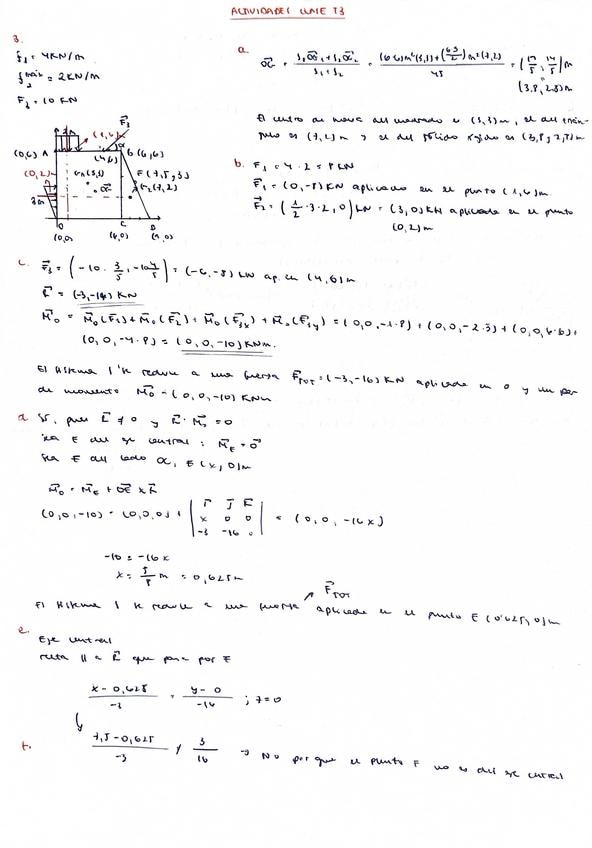 ACTIVIDADES CLASE T3
3.
f₁ = 4KN/m
f₂ᵐáˣ = 2KN/m
F₃ = 10 KN
a. OG = (S₁OG₁ + S₂OG₂) / (S₁ + S₂) = ((6·6)m²(3,3) + (6·3/2)m²(7,2)) / 45 = (19/5, 14/5) m
(3,8, 2,8) m
El centro de masa del cuadrado es (3,3) m, el del trián-
gulo es (7,2) m y el del sólido rígido es (3,8, 2,8) m
F₃
(0,6) A
(4,6)
B (6,6)
(0,2)
G₁(3,3)
OG
F (7,5, 3)
G₂(7,2)
O
C
D
(0,0)
(6,0)
(9,0)
b. F₁ = 4 · 2 = 8 KN
F₁ = (0, -8) KN aplicado en el punto (1,6) m.
F₂ = (1/2 · 3 · 2, 0) KN = (3,0) KN aplicada en el punto
(0,2) m
c. F₃ = (-10 · 3/5, -10 4/5) = (-6, -8) KN ap. en (4,6) m
R = (-3, -16) KN
M₀ = M₀(F₁) + M₀(F₂) + M₀(F₃ₓ) + M₀(F₃ᵧ) = (0,0,-1·8) + (0,0,-2·3) + (0,0,6·6) +
(0,0,-4·8) = (0,0,-10) KNm.
El sistema 1 se reduce a una fuerza F_TOT = (-3, -16) KN aplicada en O y un par
de momento M₀ = (0,0,-10) KNm
d. Sí, pues R ≠ 0 y R · M₀ = 0
sea E del eje central : M_E = 0
Sea E del lado OC, E (x, 0) m
M₀ = M_E + OE x R
(0,0,-10) = (0,0,0) + | i j k | x 0 0 | -3 -16 0 | = (0,0,-16x)
-10 = -16x
x = 5/8 m = 0,625m
El sistema 1 se reduce a una fuerza F_TOT aplicada en el punto E (0'625, 0) m
e. Eje central
recta || a R que pasa por E
(x - 0,625)/-3 = (y - 0)/-16 ; z = 0
f. (7,5 - 0,625)/-3 ≠ 3/16 → No porque el punto F no es del eje central